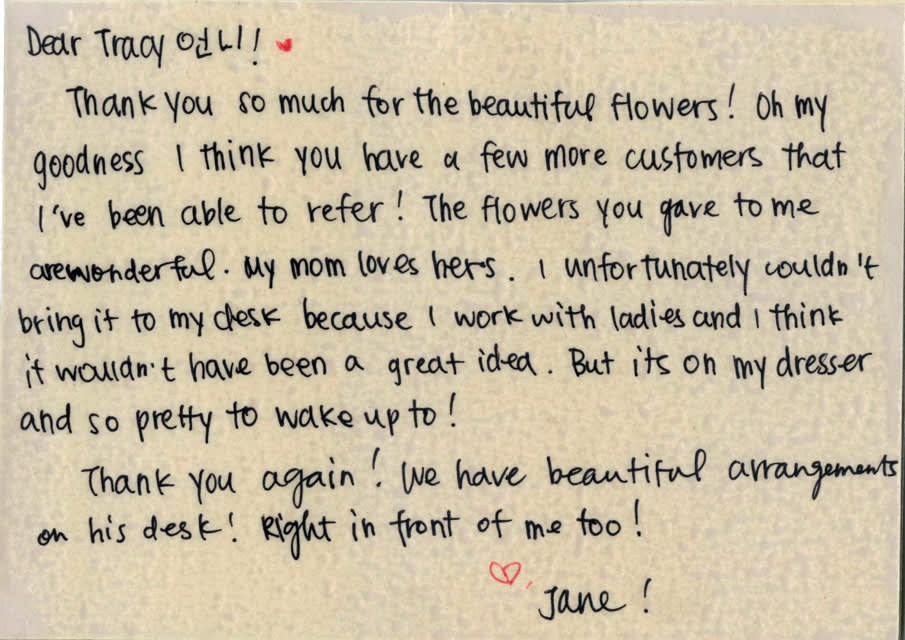 Dear Tracy 언니!
Thank you so much for the beautiful flowers! Oh my
goodness I think you have a few more customers that
I've been able to refer! The flowers you gave to me
are wonderful. My mom loves hers. I unfortunately couldn't
bring it to my desk because I work with ladies and I think
it wouldn't have been a great idea. But its on my dresser
and so pretty to wake up to!
Thank you again! We have beautiful arrangements
on his desk! Right in front of me too!
Jane!